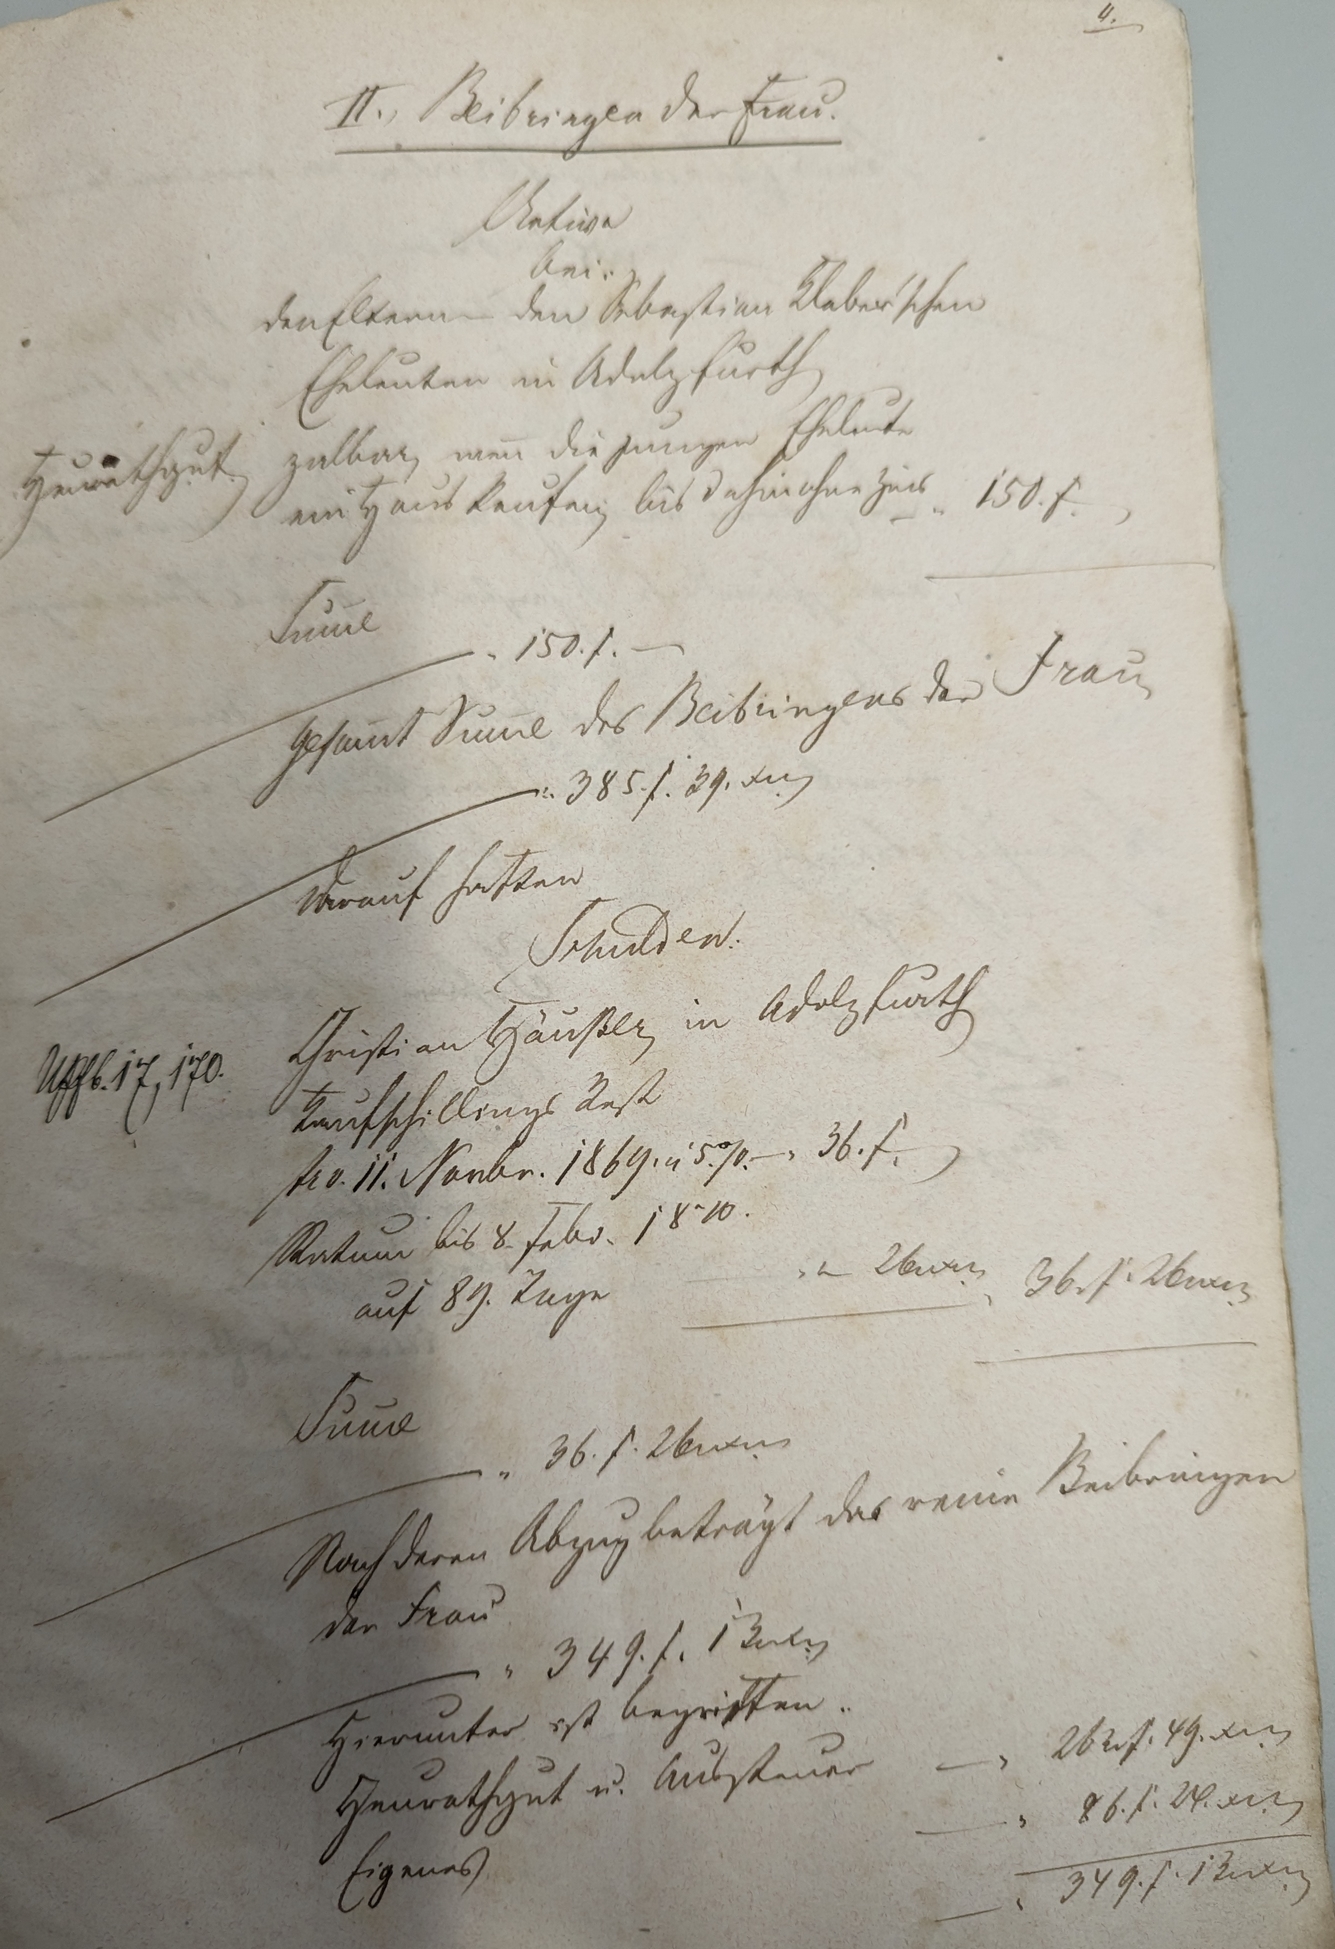 4.
II., Beibringen der Frau.
Activa
bei:
den Eltern den Sebastian Klaber'schen
Eheleuten in Adolzfurth
Heurathgut. zalbar, wenn die jungen Eheleute
ein Haus kaufen, bis dahin ohne Zins " 150. f. —
Sum̅e
— " 150. f. —
Gesam̅t Sum̅e des Beibringens der Frau,
— " 385. f. 39. xr.
Darauf haften
Schulden:
Christian Häußler, in Adolzfurth
Uffb. 17, 170. Kaufschillings Rest
pro. 11. Novbr. 1869. à 5. % — " 36. f. —
Ratum bis 8. Febr. 1870.
auf 89. Tage " — 26 xr. " 36. f. 26 xr.
Sum̅e
— " 36. f. 26 xr.
Nach deren Abzug beträgt das reine Beibringen
der Frau
— " 349. f. 13 xr.
Hierunter ist begriffen:
Heurathgut u. Aussteuer — " 262. f. 49. xr.
Eigenes — " 86. f. 24. xr.
— " 349. f. 13 xr.